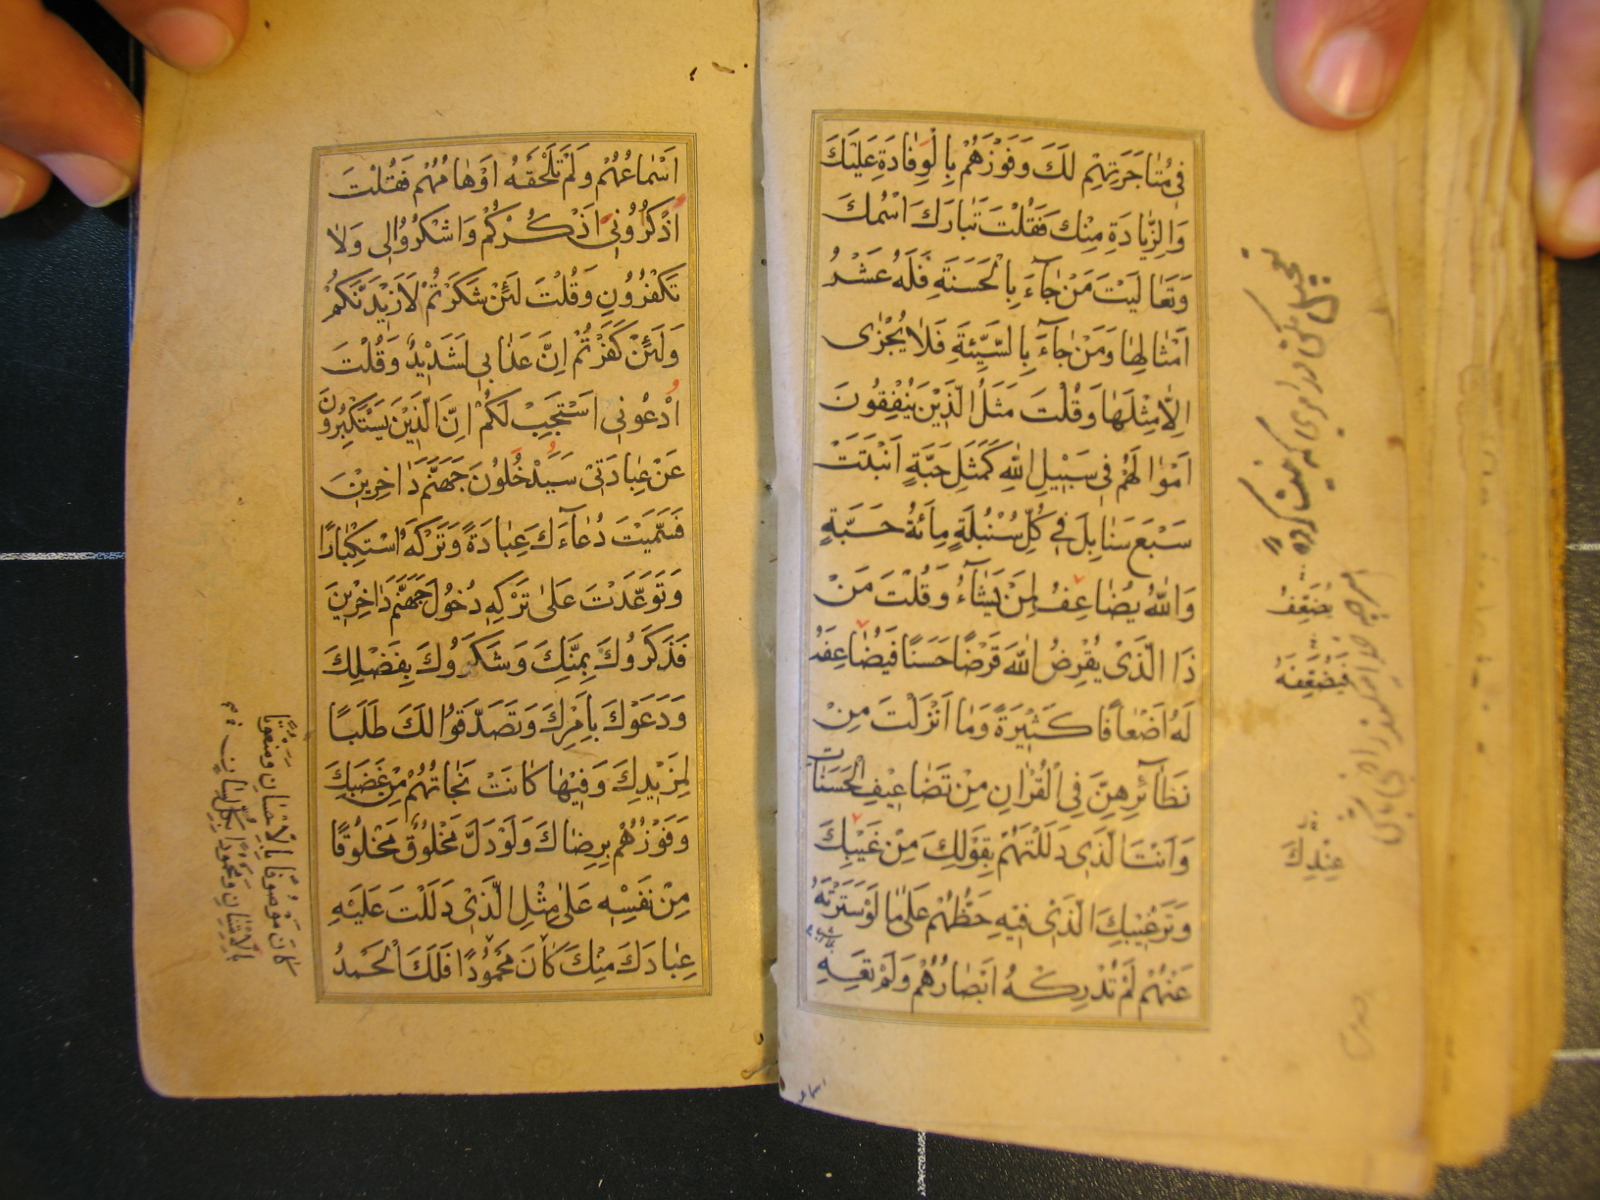 فِى مُتَاجَرَتِهِمْ لَكَ وَفَوْزَهُمْ بِالْوِفَادَةِ عَلَيْكَ
وَالزِّيَادَةِ مِنْكَ فَقُلْتَ تَبَارَكَ اسْمُكَ
وَتَعَالَيْتَ مَنْ جَآءَ بِالْحَسَنَةِ فَلَهُ عَشْرُ
اَمْثَالِهَا وَمَنْ جَآءَ بِالسَّيِّئَةِ فَلَا يُجْزٰى
اِلَّا مِثْلَهَا وَقُلْتَ مَثَلُ الَّذِيْنَ يُنْفِقُونَ
اَمْوَالَهُمْ فِى سَبِيْلِ اللهِ كَمَثَلِ حَبَّةٍ اَنْبَتَتْ
سَبْعَ سَنَابِلَ فِى كُلِّ سُنْبُلَةٍ مِائَةُ حَبَّةٍ
وَاللهُ يُضَاعِفُ لِمَنْ يَشَآءُ وَقُلْتَ مَنْ
ذَا الَّذِى يُقْرِضُ اللهَ قَرْضًا حَسَنًا فَيُضَاعِفَهُ
لَهُ اَضْعَافًا كَثِيْرَةً وَمَا اَنْزَلْتَ مِنْ
نَظَآئِرِهِنَّ فِى الْقُرْاٰنِ مِنْ تَضَاعِيْفِ الْحَسَنَاتِ
وَاَنْتَ الَّذِى دَلَلْتَهُمْ بِقَوْلِكَ مِنْ غَيْبِكَ
وَتَرْغِيْبِكَ الَّذِى فِيْهِ حَظُّهُمْ عَلٰى مَا لَوْ سَتَرْتَهُ
عَنْهُمْ لَمْ تُدْرِكْهُ اَبْصَارُهُمْ وَلَمْ تَعِهِ
يُضَعِّفُ
فَيُضَعِّفَهُ
عِنْدِكَ
اسماعهم
اَسْمَاعُهُمْ وَلَمْ تَلْحَقْهُ اَوْهَامُهُمْ فَقُلْتَ
اُذْكُرُونِى اَذْكُرْكُمْ وَاشْكُرُوا لِى وَلَا
تَكْفُرُونِ وَقُلْتَ لَئِنْ شَكَرْتُمْ لَاَزِيْدَنَّكُمْ
وَلَئِنْ كَفَرْتُمْ اِنَّ عَذَابِى لَشَدِيْدٌ وَقُلْتَ
اُدْعُونِى اَسْتَجِبْ لَكُمْ اِنَّ الَّذِيْنَ يَسْتَكْبِرُونَ
عَنْ عِبَادَتِى سَيَدْخُلُونَ جَهَنَّمَ دَاخِرِيْنَ
فَسَمَّيْتَ دُعَآءَكَ عِبَادَةً وَتَرْكَهُ اسْتِكْبَارًا
وَتَوَعَّدْتَ عَلٰى تَرْكِهِ دُخُولَ جَهَنَّمَ دَاخِرِيْنَ
فَذَكَرُوكَ بِمَنِّكَ وَشَكَرُوكَ بِفَضْلِكَ
وَدَعَوْكَ بِاَمْرِكَ وَتَصَدَّقُوا لَكَ طَلَبًا
لِمَزِيْدِكَ وَفِيْهَا كَانَتْ نَجَاتُهُمْ مِنْ غَضَبِكَ
وَفَوْزُهُمْ بِرِضَاكَ وَلَوْ دَلَّ مَخْلُوقٌ مَخْلُوقًا
مِنْ نَفْسِهِ عَلٰى مِثْلِ الَّذِى دَلَلْتَ عَلَيْهِ
عِبَادَكَ مِنْكَ كَانَ مَحْمُودًا فَلَكَ الْحَمْدُ
كَانَ مَوْصُوفًا بِالْاِحْسَانِ وَمَنْعُوتًا
بِالْاِمْتِنَانِ وَمَحْمُودًا بِكُلِّ لِسَانٍ